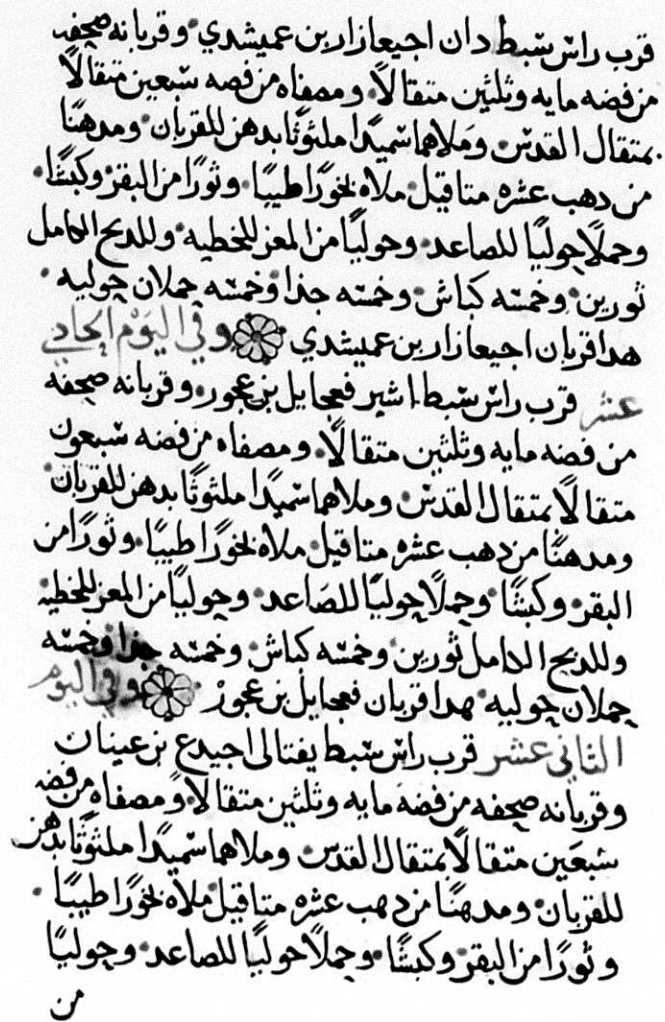 قرب راس سبط دان اجيعازار بن عميشدي وقربانه صحفه
من فضه مايه وثلثين متقالًا ومصفاه من فضه سبعين متقالًا
بمتقال القدس وملاهما سميدًا ملثوثًا بدهن للقربان ومدهنًا
من دهب عشره متاقيل ملاه بخورًا طيبًا وثورًا من البقر وكبشًا
وحملًا حوليًا للصاعد وحوليًا من المعز للخطيه وللدبح الكامل
ثورين وخمسه كباش وخمسه جدا وخمسه حملان حوليه
هدا قربان اجيعازار بن عميشدي وفي اليوم الحادي
عشر قرب راس سبط اشير فعجايل بن عجور وقربانه صحفه
من فضه مايه وثلثين متقالًا ومصفاه من فضه سبعون
متقالًا بمتقال القدس وملاهما سميدًا ملثوثًا بدهن للقربان
ومدهنًا من دهب عشره متاقيل ملاه بخورًا طيبًا وثورًا من
البقر وكبشًا وحملًا حوليًا للصاعد وحوليًا من المعز للخطيه
وللدبح الكامل ثورين وخمسه كباش وخمسه جدا وخمسه
حملان حوليه هدا قربان فعجايل بن عجور وفي اليوم
التاني عشر قرب راس سبط يفتالى اجيدع بن عينان
وقربانه صحفه من فضه مايه وثلثين متقالًا ومصفاه من فضه
سبعين متقالًا بمتقال القدس وملاهما سميدًا ملثوثًا بدهن
للقربان ومدهنًا من دهب عشره متاقيل ملاه بخورًا طيبًا
وثورًا من البقر وكبشًا وحملًا حوليًا للصاعد وحوليًا
من